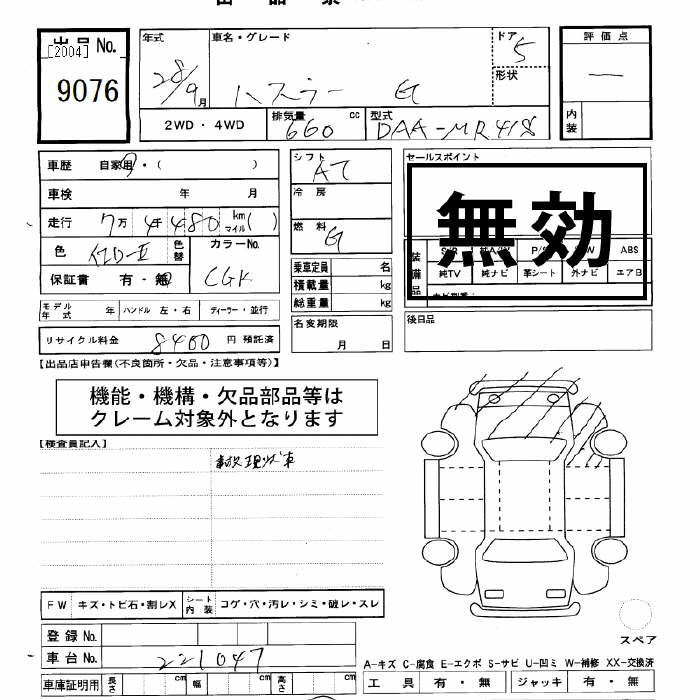 出品No. 年式 車名・グレード ドア 5 評価点
[2004]
9076 28/9月 ハスラー G 形状 —
2WD・4WD 排気量 660 cc 型式 DAA-MR41S 内装
車歴 自家用・( ) シフト AT セールスポイント
車検 年 月 冷房
走行 7万4千480 km マイル( ) 燃料 G 無効
色 色替 カラーNo. CGK 装備品 P/S ABS
保証書 有・無 乗車定員 名 純TV 純ナビ 革シート 外ナビ エアB
積載量 kg
モデル年式 年 ハンドル 左・右 ディーラー・並行 総重量 kg
リサイクル料金 8400 円 預託済 名変期限 月 日 後日品
【出品店申告欄(不良箇所・欠品・注意事項等)】
機能・機構・欠品部品等は
クレーム対象外となります
【検査員記入】
FW キズ・トビ石・割レX シート内装 コゲ・穴・汚レ・シミ・破レ・スレ
登録No. スペア
車台No. 221047 A-キズ C-腐食 E-エクボ S-サビ U-凹ミ W-補修 XX-交換済
車庫証明用 長さ cm 幅 cm 高さ cm 工具 有・無 ジャッキ 有・無